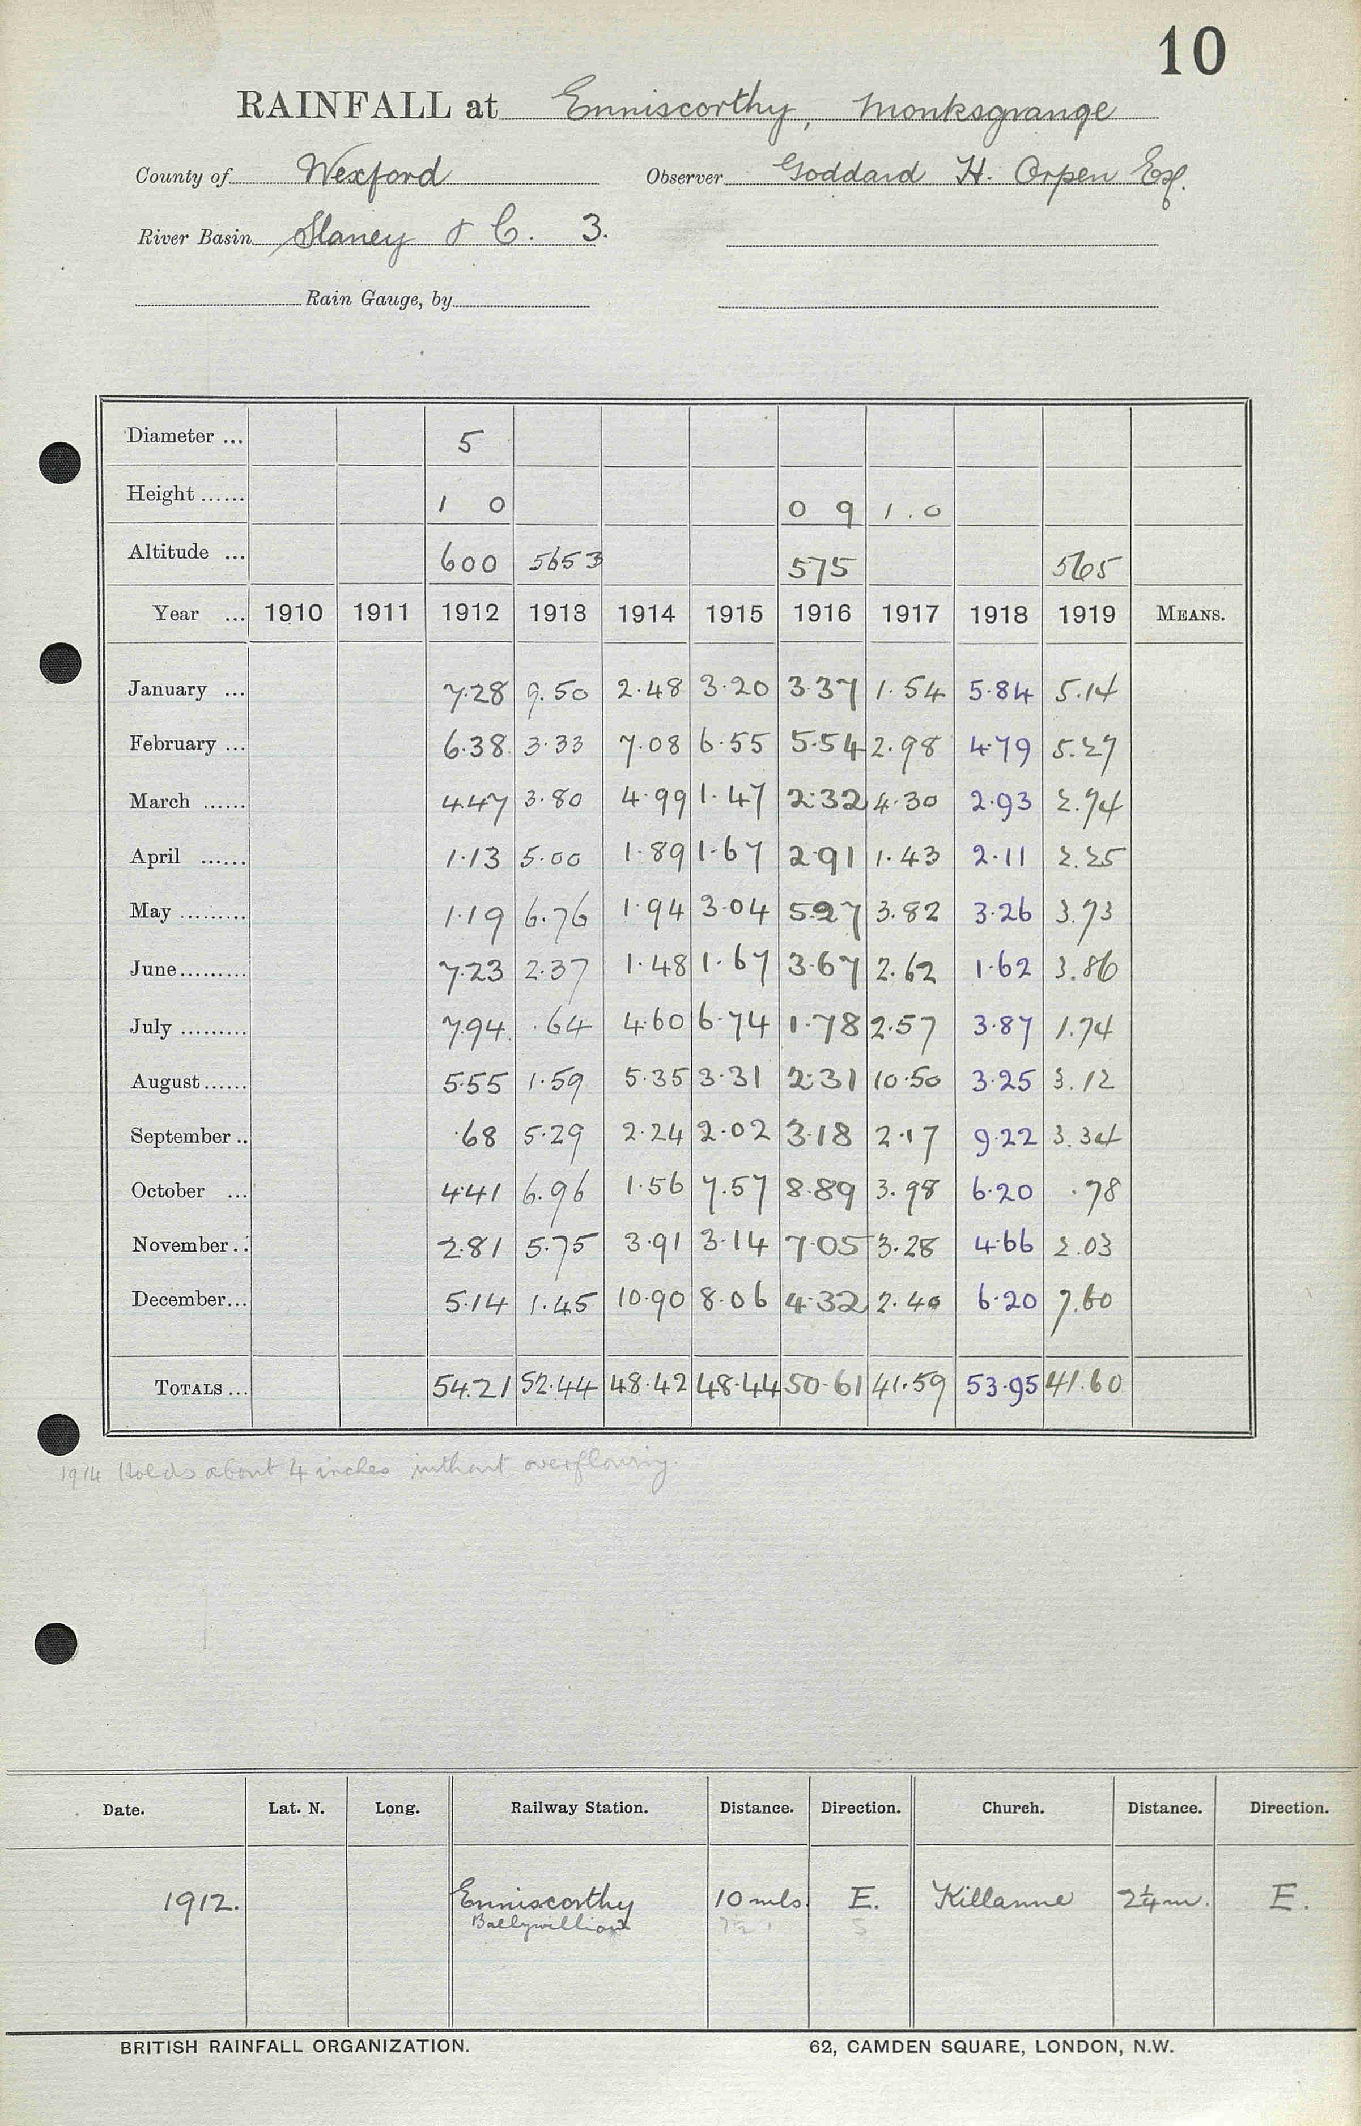 10
RAINFALL at Enniscorthy, Monksgrange
County of Wexford Observer Goddard H. Orpen Esq.
River Basin Slaney & C. 3.
Rain Gauge, by
Diameter ... 5
Height ...... 1 0 0 9 1.0
Altitude ... 600 565 3 575 565
Year ... 1910 1911 1912 1913 1914 1915 1916 1917 1918 1919 MEANS.
January ... 7.28 9.50 2.48 3.20 3.37 1.54 5.84 5.14
February ... 6.38 3.33 7.08 6.55 5.54 2.98 4.79 5.27
March ...... 4.47 3.80 4.99 1.47 2.32 4.30 2.93 2.74
April ...... 1.13 5.00 1.89 1.67 2.91 1.43 2.11 2.25
May ......... 1.19 6.76 1.94 3.04 5.27 3.82 3.26 3.73
June......... 7.23 2.37 1.48 1.67 3.67 2.62 1.62 3.86
July ......... 7.94 .64 4.60 6.74 1.78 2.57 3.87 1.74
August...... 5.55 1.59 5.35 3.31 2.31 10.50 3.25 3.12
September .. .68 5.29 2.24 2.02 3.18 2.17 9.22 3.34
October ... 4.41 6.96 1.56 7.57 8.89 3.98 6.20 .78
November .. 2.81 5.75 3.91 3.14 7.05 3.28 4.66 2.03
December... 5.14 1.45 10.90 8.06 4.32 2.40 6.20 7.60
TOTALS ... 54.21 52.44 48.42 48.44 50.61 41.59 53.95 41.60
1914 Holds about 4 inches without overflowing.
Date. Lat. N. Long. Railway Station. Distance. Direction. Church. Distance. Direction.
1912. Enniscorthy 10 mls. E. Killanne 2¼ m. E.
Ballywilliam 7½ S
BRITISH RAINFALL ORGANIZATION. 62, CAMDEN SQUARE, LONDON, N.W.